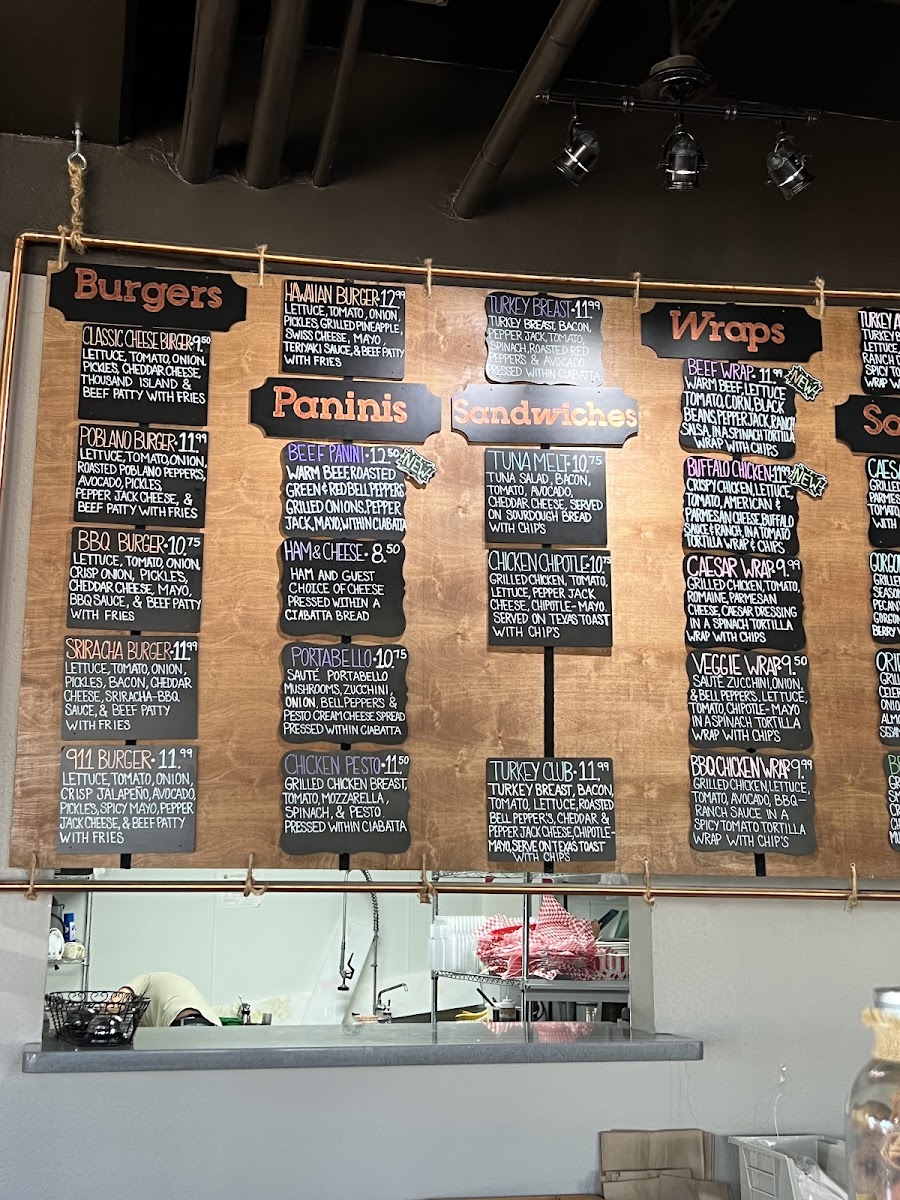 Burgers
CLASSIC CHEESE BURGER • 9.50
LETTUCE, TOMATO, ONION,
PICKLES, CHEDDAR CHEESE,
THOUSAND ISLAND &
BEEF PATTY WITH FRIES
POBLANO BURGER • 11.99
LETTUCE, TOMATO, ONION,
ROASTED POBLANO PEPPER'S,
AVOCADO, PICKLES,
PEPPER JACK CHEESE, &
BEEF PATTY WITH FRIES
BBQ BURGER • 10.75
LETTUCE, TOMATO, ONION,
CRISP ONION, PICKLES,
CHEDDAR CHEESE, MAYO,
BBQ SAUCE, & BEEF PATTY
WITH FRIES
SRIRACHA BURGER • 11.99
LETTUCE, TOMATO, ONION,
PICKLES, BACON, CHEDDAR
CHEESE, SRIRACHA-BBQ
SAUCE, & BEEF PATTY
WITH FRIES
911 BURGER • 11.99
LETTUCE, TOMATO, ONION,
CRISP JALAPEÑO, AVOCADO,
PICKLES, SPICY MAYO, PEPPER
JACK CHEESE, & BEEF PATTY
WITH FRIES
HAWAIIAN BURGER • 12.99
LETTUCE, TOMATO, ONION,
PICKLES, GRILLED PINEAPPLE,
SWISS CHEESE, MAYO,
TERYAKI SAUCE, & BEEF PATTY
WITH FRIES
Paninis
BEEF PANINI • 12.50
NEW!
WARM BEEF, ROASTED
GREEN & RED BELL PEPPERS
GRILLED ONIONS, PEPPER
JACK, MAYO, WITHIN CIABATTA
HAM & CHEESE • 8.50
HAM AND GUEST
CHOICE OF CHEESE
PRESSED WITHIN A
CIABATTA BREAD
PORTABELLO • 10.75
SAUTÉ PORTABELLO
MUSHROOMS, ZUCCHINI,
ONION, BELL PEPPERS &
PESTO CREAM CHEESE SPREAD
PRESSED WITHIN CIABATTA
CHICKEN PESTO • 11.50
GRILLED CHICKEN BREAST,
TOMATO, MOZZARELLA,
SPINACH, & PESTO
PRESSED WITHIN CIABATTA
TURKEY BREAST • 11.99
TURKEY BREAST, BACON,
PEPPER JACK, TOMATO,
SPINACH, ROASTED RED
PEPPERS & AVOCADO
PRESSED WITHIN CIABATTA
Sandwiches
TUNA MELT • 10.75
TUNA SALAD, BACON,
TOMATO, AVOCADO,
CHEDDAR CHEESE, SERVED
ON SOURDOUGH BREAD
WITH CHIPS
CHICKEN CHIPOTLE • 10.75
GRILLED CHICKEN, TOMATO,
LETTUCE, PEPPER JACK
CHEESE, CHIPOTLE-MAYO.
SERVED ON TEXAS TOAST
WITH CHIPS
TURKEY CLUB • 11.99
TURKEY BREAST, BACON,
TOMATO, LETTUCE, ROASTED
BELL PEPPER'S, CHEDDAR &
PEPPER JACK CHEESE, CHIPOTLE-
MAYO, SERVE ON TEXAS TOAST
WITH CHIPS
Wraps
BEEF WRAP • 11.99
NEW!
WARM BEEF, LETTUCE
TOMATO, CORN, BLACK
BEANS, PEPPER JACK, RANCH
SALSA, IN A SPINACH TORTILLA
WRAP WITH CHIPS
BUFFALO CHICKEN • 11.99
NEW!
CRISPY CHICKEN, LETTUCE,
TOMATO, AMERICAN &
PARMESAN CHEESE, BUFFALO
SAUCE & RANCH, IN A TOMATO
TORTILLA WRAP & CHIPS
CAESAR WRAP • 9.99
GRILLED CHICKEN, TOMATO,
ROMAINE, PARMESAN
CHEESE, CAESAR DRESSING
IN A SPINACH TORTILLA
WRAP WITH CHIPS
VEGGIE WRAP • 9.50
SAUTE ZUCCHINI, ONION,
& BELL PEPPER'S, LETTUCE,
TOMATO, CHIPOTLE-MAYO
IN A SPINACH TORTILLA
WRAP WITH CHIPS
BBQ CHICKEN WRAP 9.99
GRILLED CHICKEN, LETTUCE,
TOMATO, AVOCADO, BBQ-
RANCH SAUCE IN A
SPICY TOMATO TORTILLA
WRAP WITH CHIP'S
TURKEY
TURKEY
LETTUCE
RANCH
SPICY TO
WRAP W
CAES
GRILLE
PARMES
TOMATO
WITH
GORGO
GRILLE
SEASO
PECAN
GORGO
BERRY